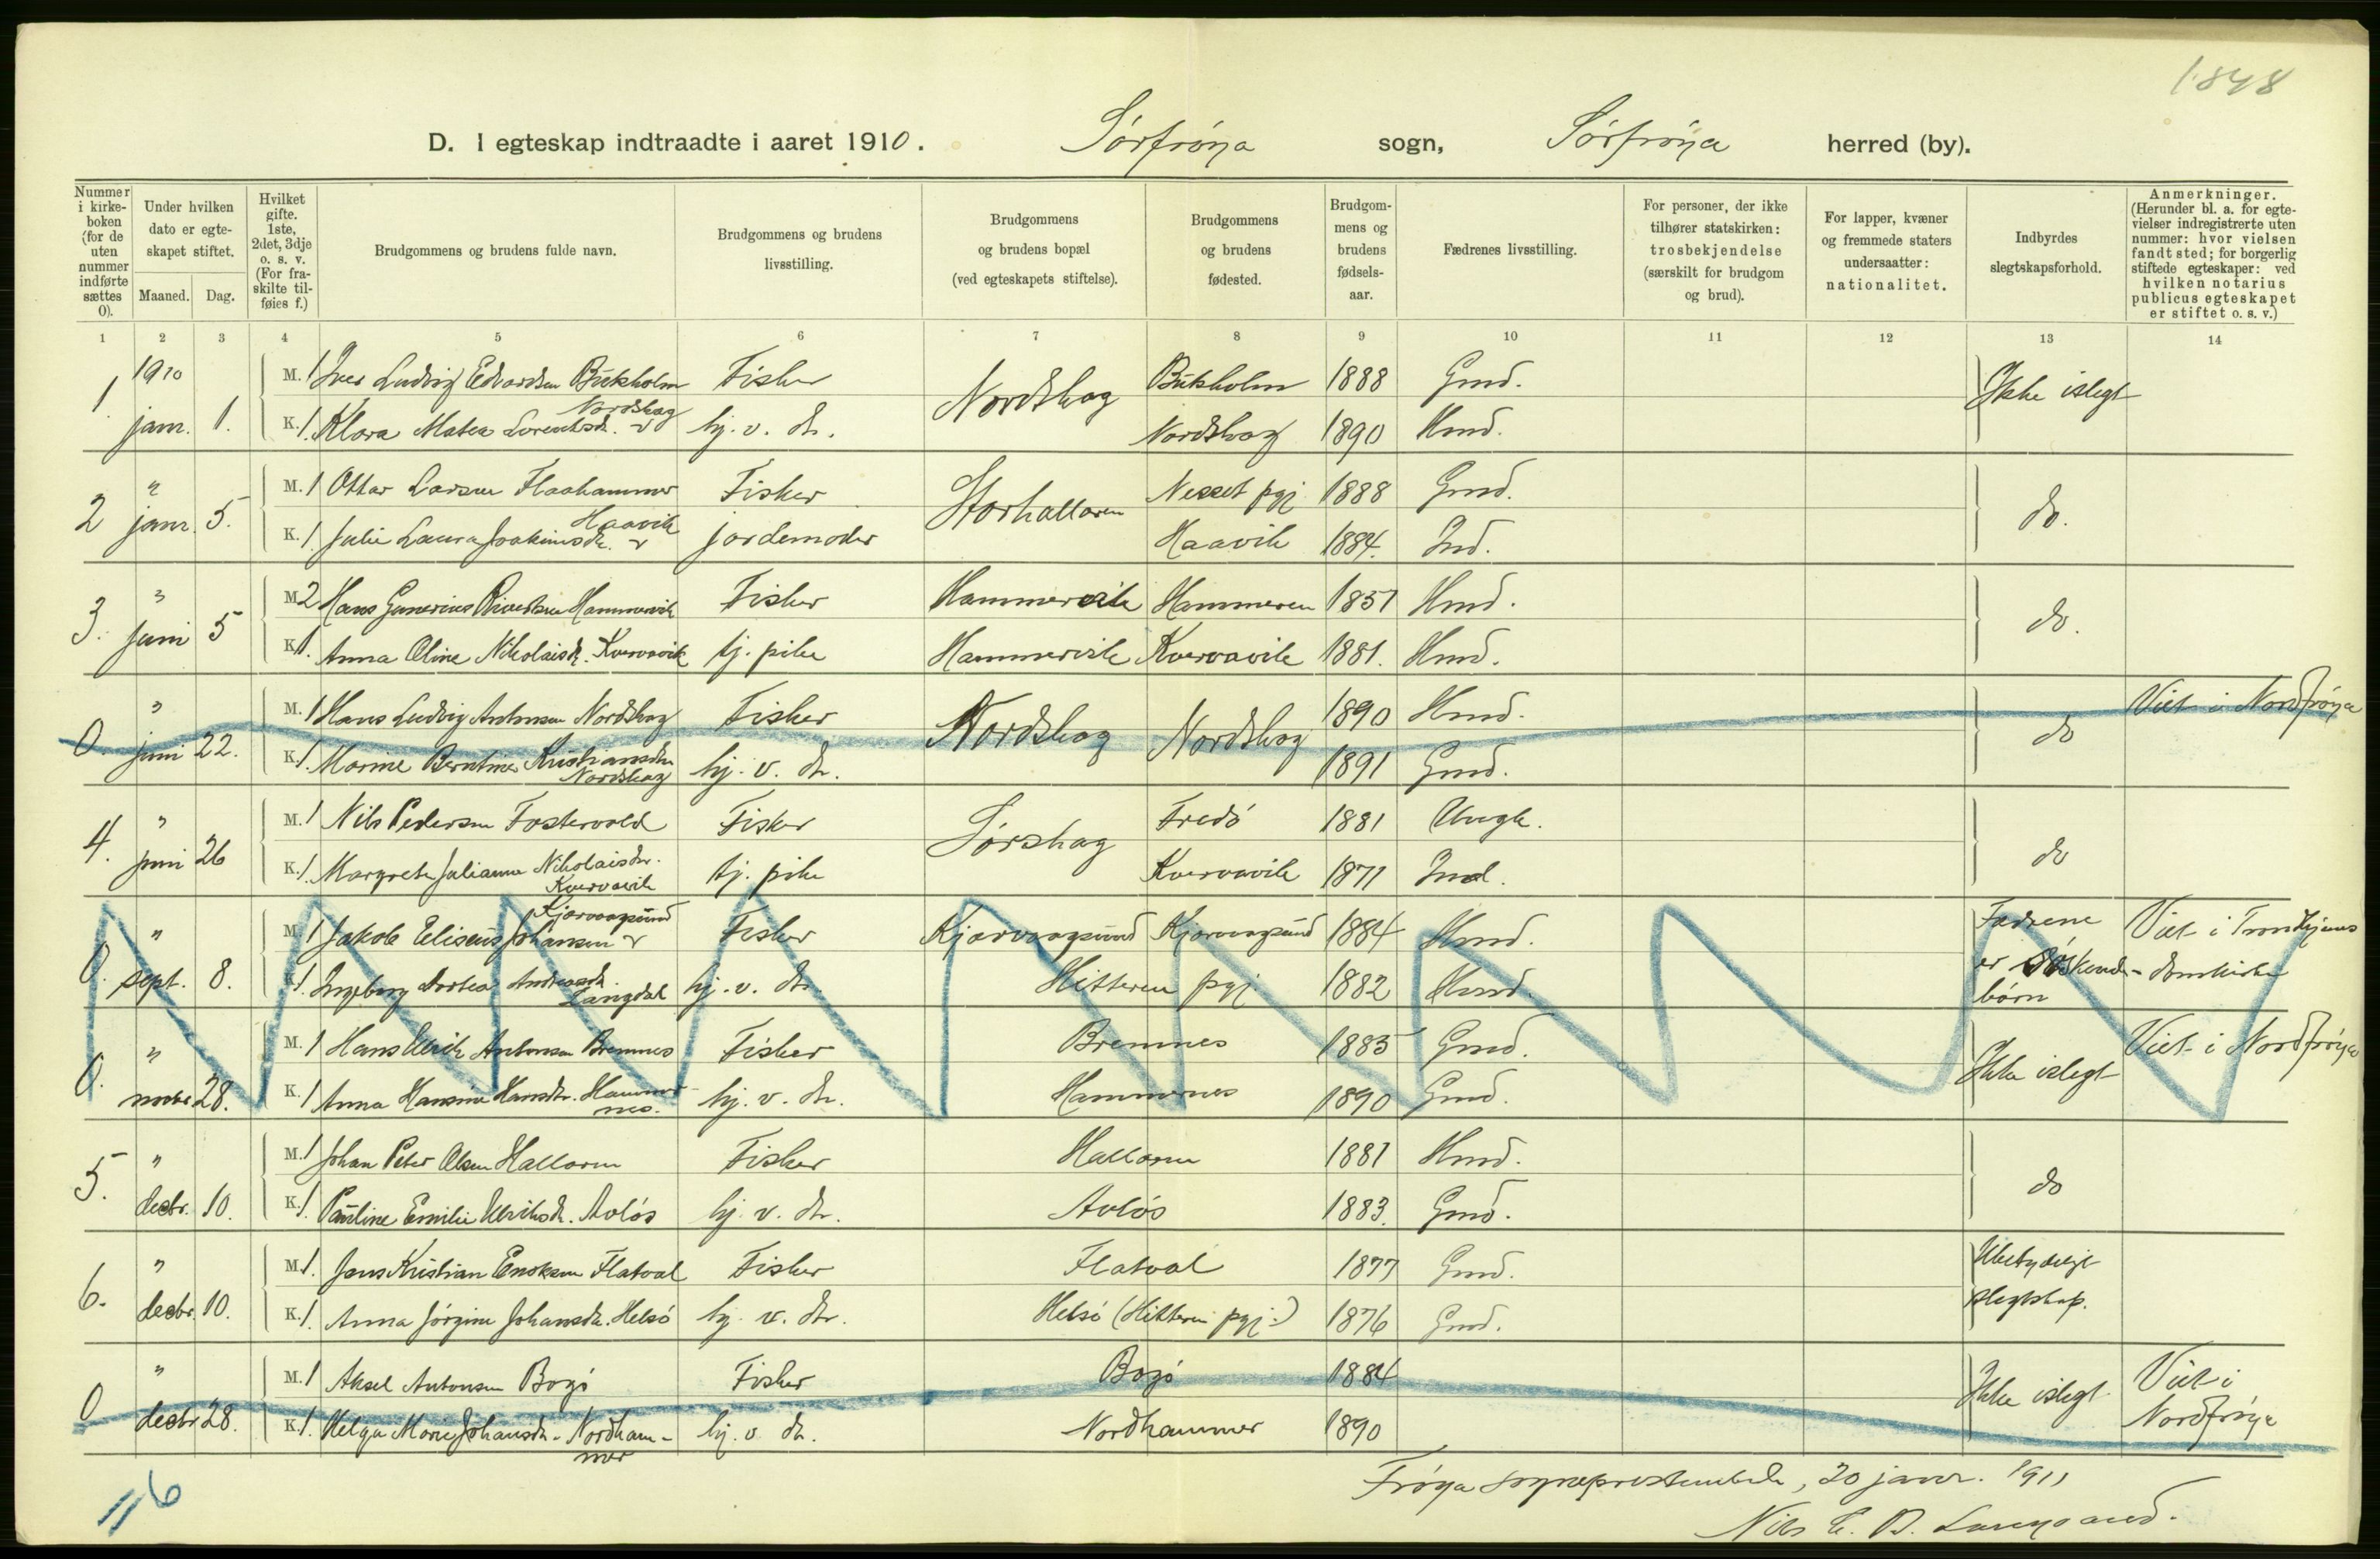 1848
D. I egteskap indtraadte i aaret 1910. Sørfrøya sogn, Sørfrøya herred (by).
Nummer i kirkeboken (for de uten nummer indførte sættes 0).
Under hvilken dato er egteskapet stiftet.
Maaned. Dag.
Hvilket gifte. 1ste, 2det, 3dje o. s. v. (For fraskilte tilføies f.)
Brudgommens og brudens fulde navn.
Brudgommens og brudens livsstilling.
Brudgommens og brudens bopæl (ved egteskapets stiftelse).
Brudgommens og brudens fødested.
Brudgommens og brudens fødselsaar.
Fædrenes livsstilling.
For personer, der ikke tilhører statskirken: trosbekjendelse (særskilt for brudgom og brud).
For lapper, kvæner og fremmede staters undersaatter: nationalitet.
Indbyrdes slegtskapsforhold.
Anmerkninger. (Herunder bl. a. for egtevielser indregistrerte uten nummer: hvor vielsen fandt sted; for borgerlig stiftede egteskaper: ved hvilken notarius publicus egteskapet er stiftet o. s. v.)
1 2 3 4 5 6 7 8 9 10 11 12 13 14
1 1910 M. 1 Iver Ludvig Edvardsen Bukholm Fisker Nordskag Bukholm 1888 Gmd. Ikke i slegt
janr. 1. K. 1. Klara Matea Lorentsdr. Nordskag hj. v. dr. Nordskag 1890 Hmd.
2 " M. 1 Ottar Larsen Flaahammer Fisker Storhallaren Nesset pgj 1888 Gmd. do.
janr. 5. K. 1. Julie Laura Joakimsdr. Haavik jordemoder Haavik 1884. Ind.
3. " M. 2 Hans Gunerius Hammervik Fisker Hammervik Hammeren 1857 Hmd. do.
juni 5 K. 1. Anna Oline Nikolaisdr. Kvervavik tj. pike Hammervik Kvervavik 1881. Hmd.
0 " M. 1 Hans Ludvig Antonsen Nordskag Fisker Nordskag Nordskag 1890 Hmd. do Viet i Nordfrøya
juni 22. K. 1. Marine Berntine Kristiansdtr Nordskag hj. v. dr. 1891 Gmd.
4. " M. 1 Nils Pedersen Fostervold Fisker Sørskag Fredø 1881 do
juni 26 K. 1. Margrete Julianna Nikolaisdr. Kvervavik tj. pike Kvervavik 1871 Ind.
0. " M. 1 Jakob Eliseus Johansen Kjørvaagsund Fisker Kjørvaagsund Kjørvaagsund 1884 Hmd. Fædrene er Søskendebørn Viet i Trondhjems domkirke
sept. 8. K. 1. Ingeborg Dortea Andreasdr. Langdal hj. v. dr. Hitteren pgj 1882 Hmd.
0. " M. 1 Hans Ulrik Antonsen Bremnes Fisker Bremnes 1885 Gmd. Ikke i slegt Viet i Nordfrøya
novbr 28. K. 1 Anna Hansine Hansdr. Hammernes. hj. v. dr. Hammernes 1890 Gmd.
5. " M. 1 Johan Peter Olsen Hallaren Fisker Hallaren 1881 Hmd. do
decbr. 10. K. 1 Pauline Emilie Ulriksdr. Auløs hj. v. dr. Auløs 1883. Gmd.
6. " M. 1. Jens Kristian Enoksen Flatval Fisker Flatval 1877 Gmd. Ubetydeligt slegtskap.
decbr. 10. K. 1. Anna Jørgine Johansdr. Helsø hj. v. dr. Helsø (Hitteren pgj.) 1876 Gmd.
0 " M. 1 Aksel Antonsen Bogø Fisker Bogø 1884 Ikke i slegt Viet i Nordfrøya
decbr 28. K. 1. Helga Marie Johansdr. Nordhammer hj. v. dr. Nordhammer 1890
6
Frøya sogneprestembede, 20 janr. 1911